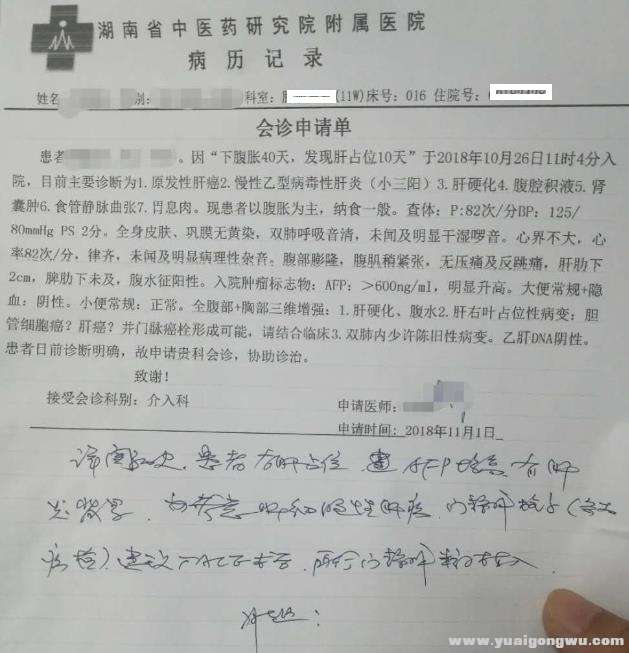 湖南省中医药研究院附属医院
病历记录
姓名 别: 科室: (11W)床号: 016 住院号:
会诊申请单
患者 。因“下腹胀40天，发现肝占位10天”于2018年10月26日11时4分入
院，目前主要诊断为1.原发性肝癌2.慢性乙型病毒性肝炎（小三阳）3.肝硬化4.腹腔积液5.肾
囊肿6.食管静脉曲张7.胃息肉。现患者以腹胀为主，纳食一般。查体：P:82次/分BP：125/
80mmHg PS 2分。全身皮肤、巩膜无黄染，双肺呼吸音清，未闻及明显干湿啰音。心界不大，心
率82次/分，律齐，未闻及明显病理性杂音。腹部膨隆，腹肌稍紧张，无压痛及反跳痛，肝肋下
2cm，脾肋下未及，腹水征阳性。入院肿瘤标志物：AFP：>600ng/ml，明显升高。大便常规+隐
血：阴性。小便常规：正常。全腹部+胸部三维增强：1.肝硬化、腹水2.肝右叶占位性病变：胆
管细胞癌？肝癌？并门脉癌栓形成可能，请结合临床3.双肺内少许陈旧性病变。乙肝DNA阴性。
患者目前诊断明确，故申请贵科会诊，协助诊治。
致谢！
接受会诊科别：介入科
申请医师：
申请时间：2018年11月1日
患者 肝占位 AFP 有肝
TACE
www.yuaigongwu.com